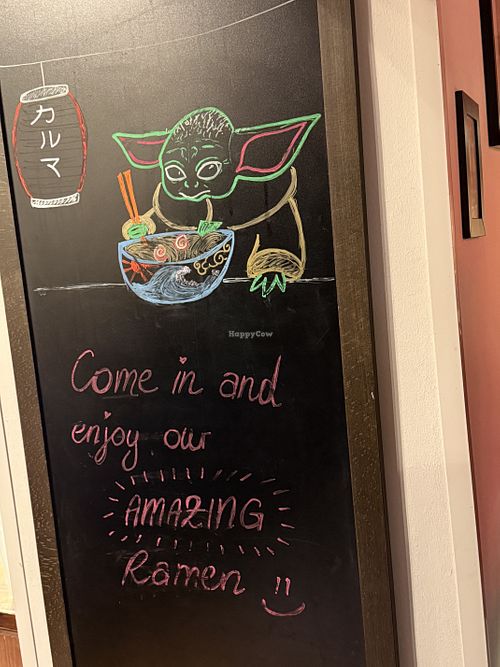 カルマ
HappyCow
Come in and
enjoy our
AMAZING
Ramen